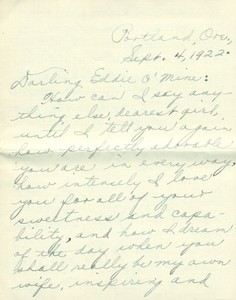 Portland, Ore.,
Sept. 4, 1922.
Darling Eddie O' Mine:
How can I say any-
thing else, dearest girl,
until I tell you again
how perfectly adorable
you are in every way,
how intensely I love
you for all of your
sweetness and capa-
bility, and how I dream
of the day when you
shall really be my own
wife, inspiring and